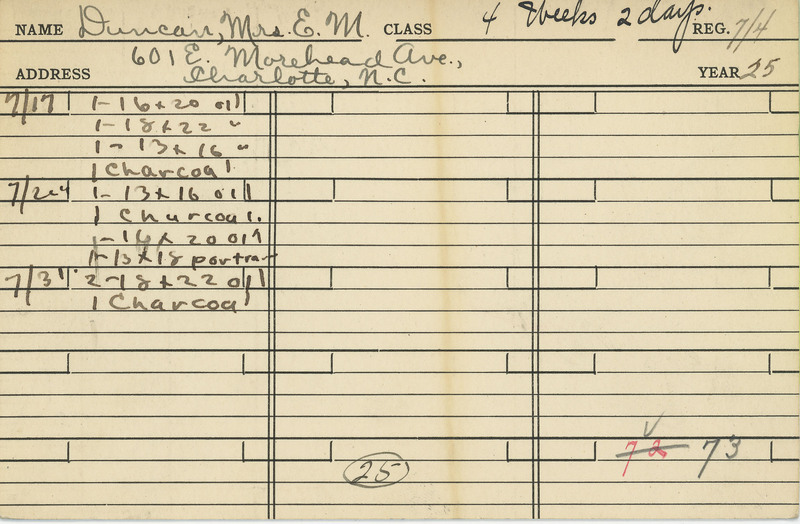 NAME Duncan, Mrs. E. M. CLASS 4 Weeks 2 days. REG. 7/4
ADDRESS 601 E. Morehead Ave.,
Charlotte, N.C. YEAR 25
7/17 1-16x20 oil
1-18x22 "
1-13x16 "
1 Charcoal
7/24 1-13x16 oil
1 Charcoal.
1-16x20 oil
1-13x18 portrait
7/31 2-18x22 oil
1 Charcoal
72 73
25